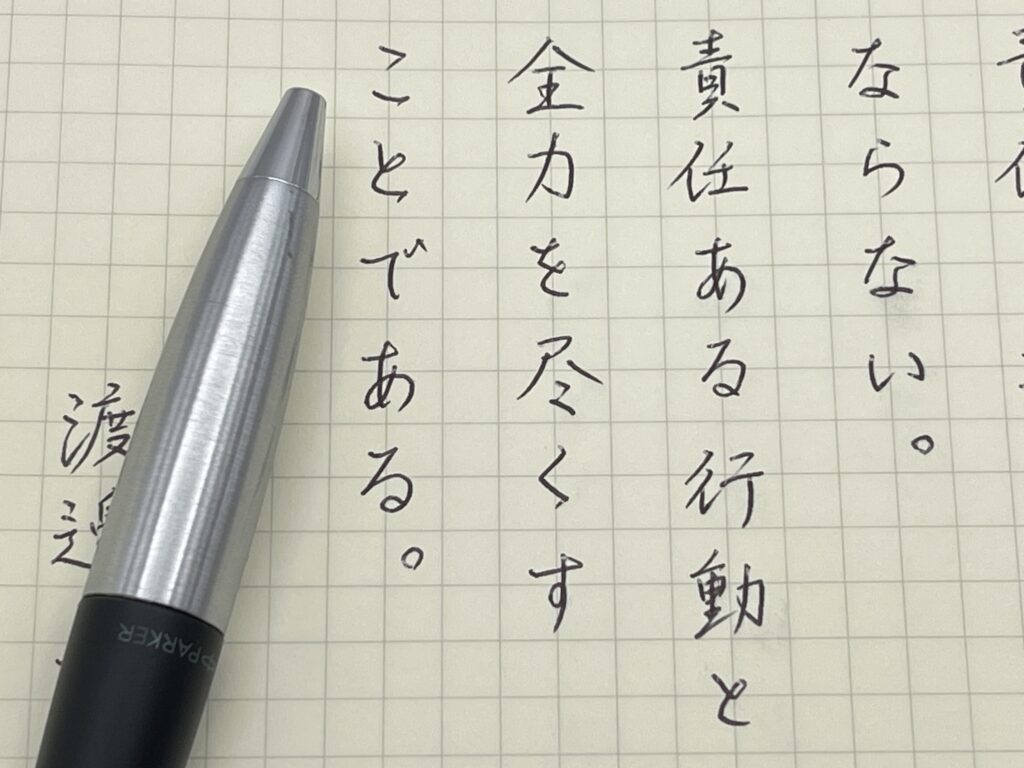 責任
ならない。
責任ある行動と
全力を尽くす
ことである。
渡邊
PARKER